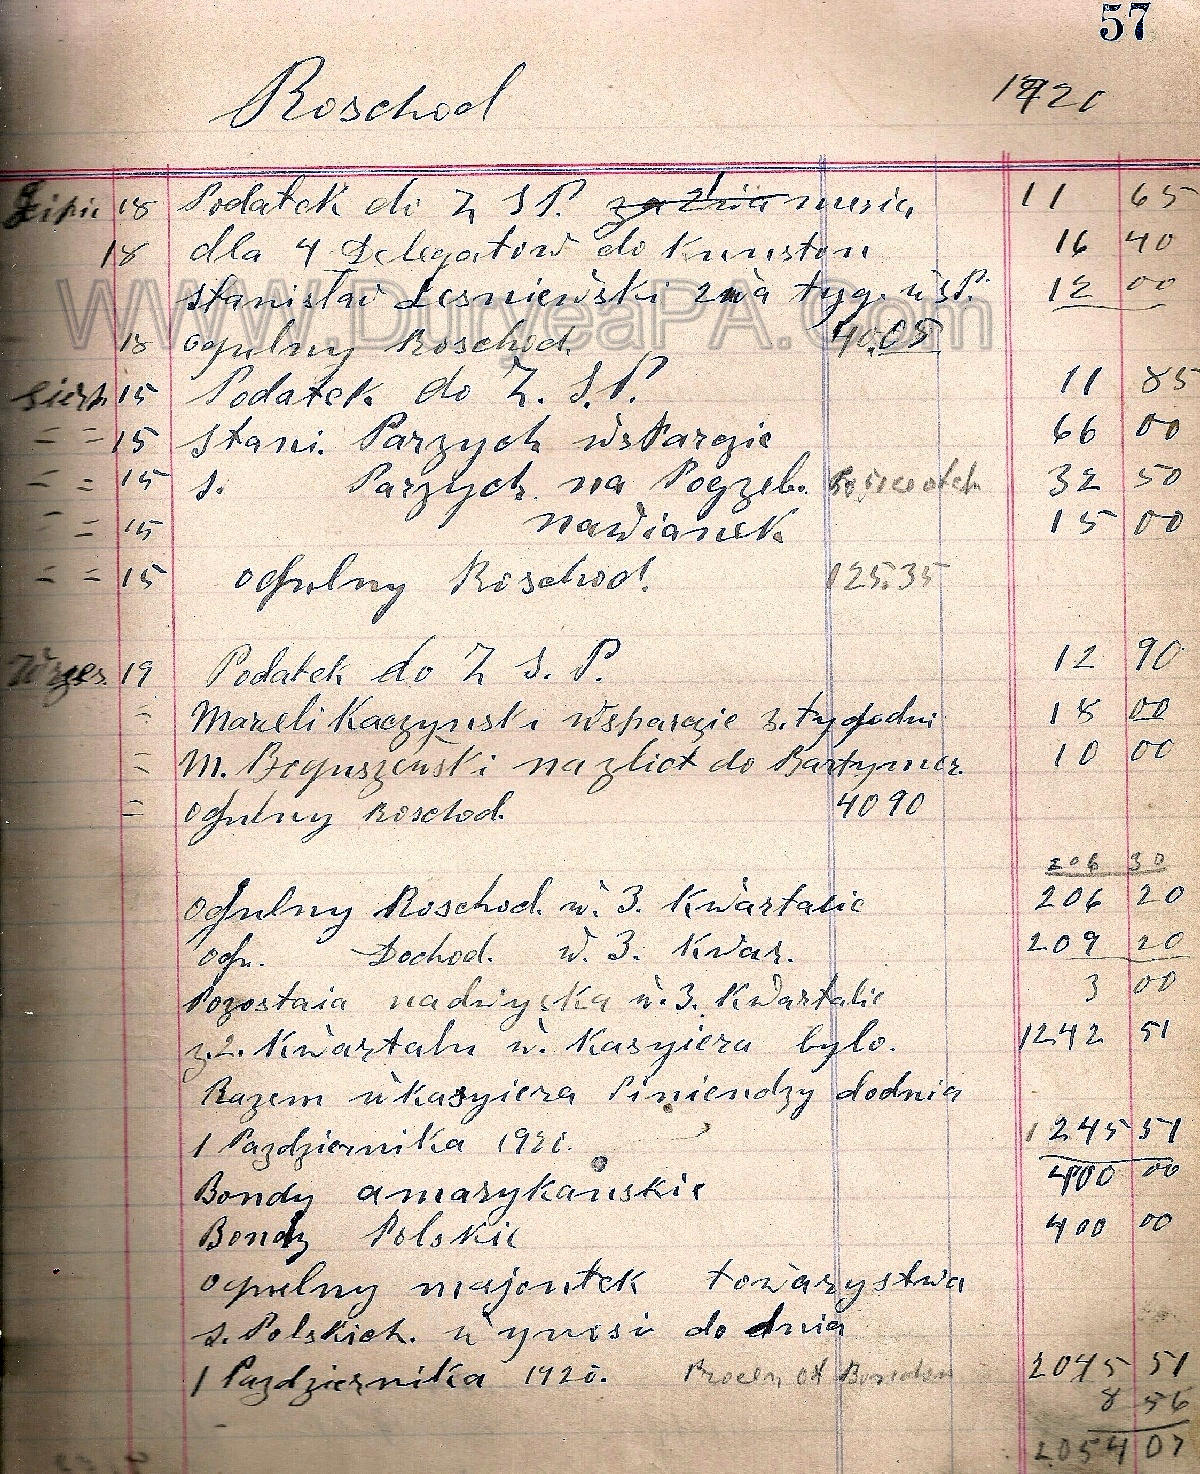 57
Roschod 1920
Lipic 18 Podatek do Z S P. za dnia mesią 11 65
18 dla 4 Delegatow do Kunston 16 40
Stanisław Lesniewski 2wa tyg. w SP. 12 00
18 ogulny Roschod. 40.05
Sierp. 15 Podatek do Z. S. P. 11 85
= = 15 Stani. Parzych wsParcie 66 00
= = 15 S. Parzych na Pogzeb. 32 50
= 15 nawianek 15 00
= = 15 ogulny Roschod. 125.35
Wrzes. 19 Podatek do Z S. P. 12 90
= Marceli Kaczynski wsparcie 3. tygodni 18 00
= M. Boguszewski na zliot do Bartymor. 10 00
= ogulny Roschod. 40 90
206 30
ogulny Roschod. w. 3. Kwartalie 206 20
ogu. Dochod. w. 3. Kwar. 209 20
Pozostaia nadwyska w. 3. Kwartalie 3 00
z. 2. Kwartalu w. Kasyiera bylo. 1242 51
Razem w Kasyiera Piniendzy dodnia
1 Pazdziernika 1920. 1245 51
Bondy amarykanskie 400 00
Bondy Polskie 400 00
ogulny majontek towarzystwa
S. Polskich. wynosi do dnia
1 Pazdziernika 1920. Procen. od Bondow 2045 51
8 56
2054 07
WWW.DuryeaPA.Com